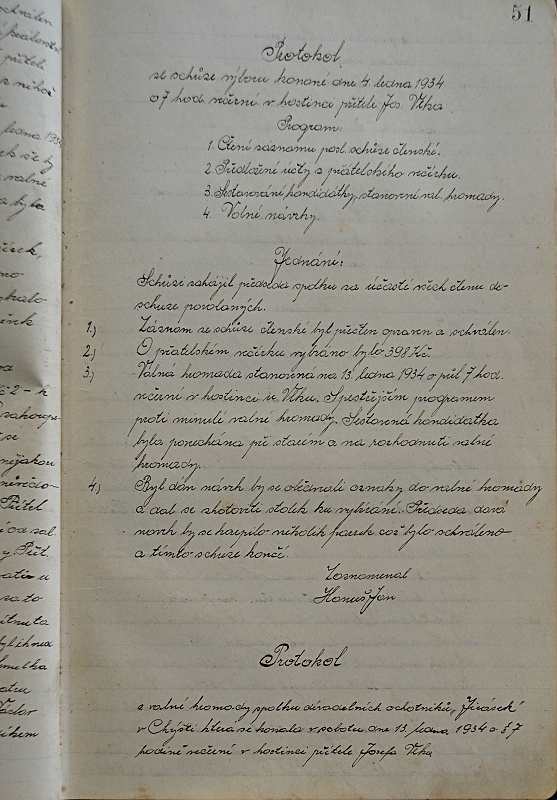 51
Protokol
ze schůze výboru konané dne 4. ledna 1934
o 7 hod. večerní v hostinci přítele Jos. Vlka
Program:
1. Čtení záznamu posl. schůze členské.
2. Předložení účty z přátelského večírku.
3. Sestavování kandidátky, stanovení val. hromady.
4. Volné návrhy.
Jednání:
Schůzi zahájil předseda spolku za účasti všech členu do
schuze povolaných.
1.) Záznam ze schůze členské byl přečten opraven a schválen.
2.) O přatelském večírku vybráno bylo 398 Kč.
3.) Valná hromada stanovena na 13. ledna 1934 o půl 7 hod.
večerní v hostinci u Vlku. S pestřejším programem
proti minulé valné hromady. Sestavená kandidatka
byla ponechána při starém a na rozhodnutí valné
hromady.
4.) Byl dán návrh by se objednali oznaky do valné hromády
a dal se zhotoviti stolek ku vybírání. Předseda dává
navrh by se koupilo několik paruk což bylo schváleno
a tímto schuze končí.
Zaznamenal
Hanuš Jan
Protokol
z valné hromady spolku divadelních ochotniků „Jirásek"
v Chýšti která se konala v sobotu dne 13. ledna 1934 o ½ 7
hodině večerní v hostinci přítele Josefa Vlka